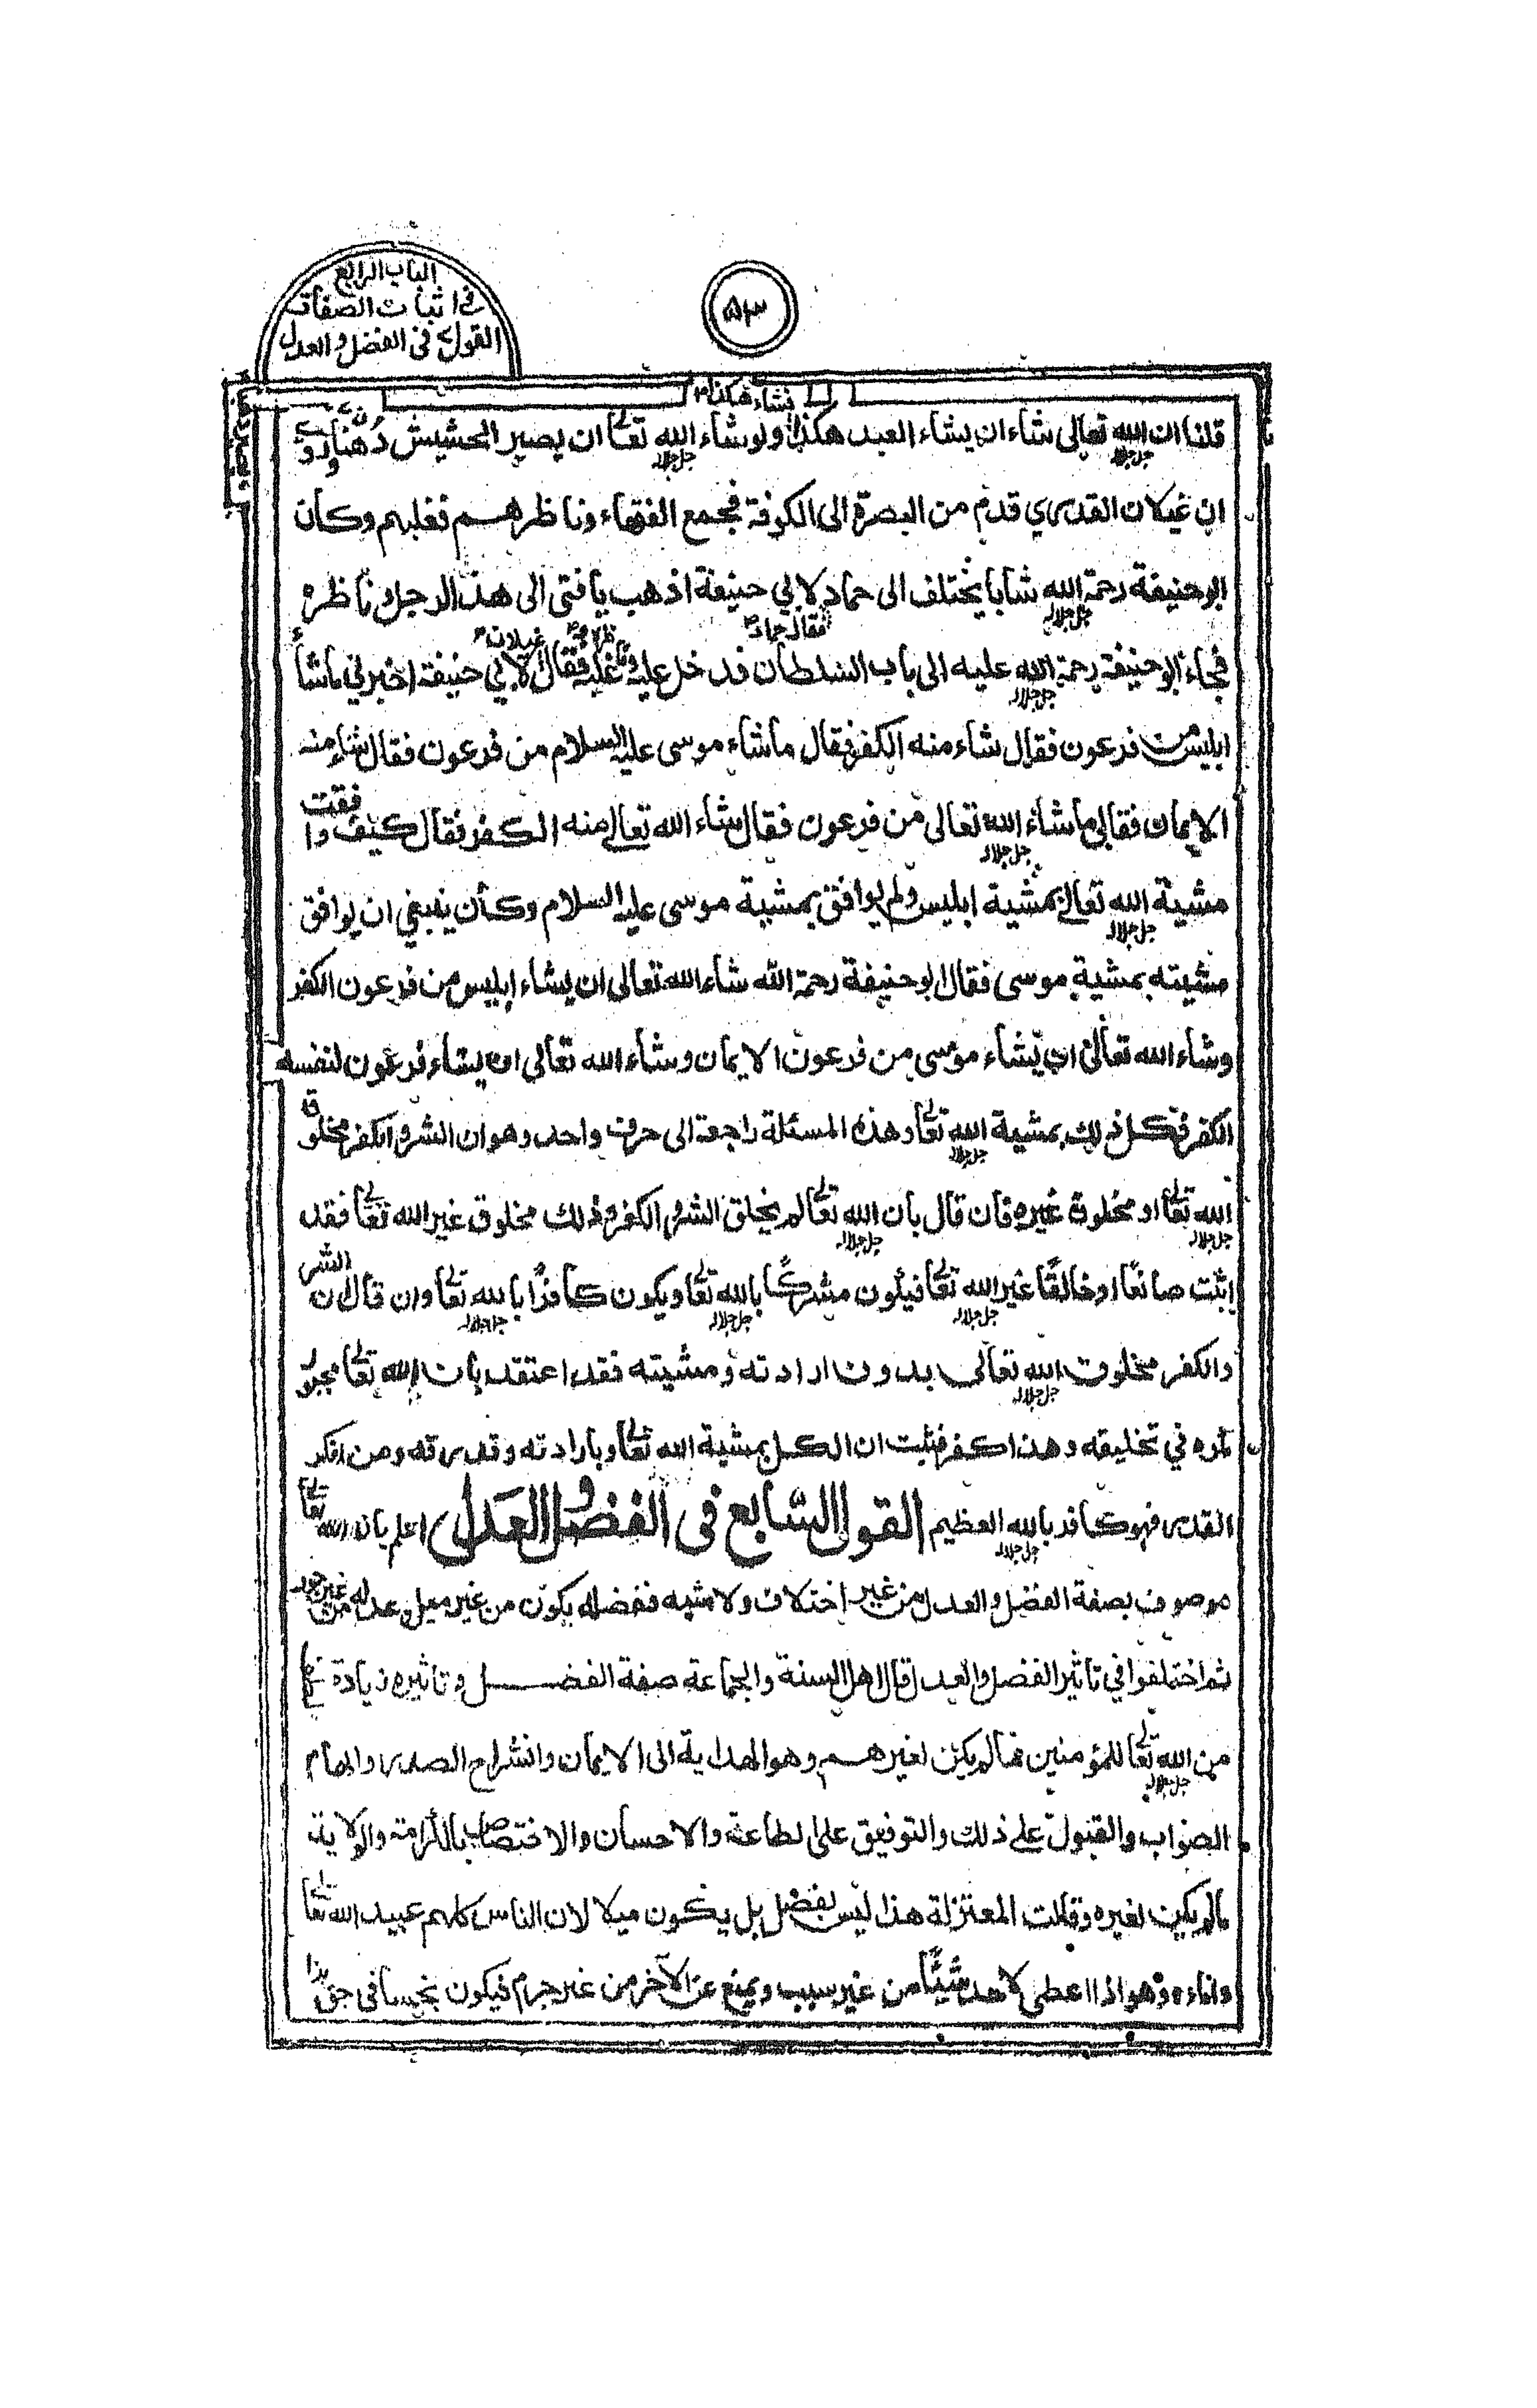 الباب الرابع
في اثبات الصفات
القول في الفضل والعدل
٥٣
نشاء هكذا
قلنا ان الله تعالى شاء ان يشاء العبد هكذا ولو شاء الله تعالى ان يصير الحشيش دهنا وروي
ان غيلان القدري قدم من البصرة الى الكوفة فجمع الفقهاء وناظرهم فغلبهم وكان
ابوحنيفة رحمة الله شابا يختلف الى حماد لابي حنيفة اذهب يا فتى الى هذا الرجل وناظره
فقال حماد
غيلان
فجاء ابوحنيفة رحمة الله عليه الى باب السلطان فدخل عليه فقال لابي حنيفة اخبرني ماشاء
ابليس من فرعون فقال شاء منه الكفر فقال ماشاء موسى عليه السلام من فرعون فقال شاء منه
الايمان فقال ماشاء الله تعالى من فرعون فقال شاء الله تعالى منه الكفر فقال كيف وافقت
مشية الله تعالى بمشية ابليس ولم يوافق بمشية موسى عليه السلام وكان ينبغي ان يوافق
مشيته بمشية موسى فقال ابوحنيفة رحمة الله شاء الله تعالى ان يشاء ابليس من فرعون الكفر
وشاء الله تعالى ان يشاء موسى من فرعون الايمان وشاء الله تعالى ان يشاء فرعون لنفسه
الكفر فكل ذلك بمشية الله تعالى وهذه المسئلة راجعة الى حرف واحد وهو ان الشر والكفر مخلوق
الله تعالى او مخلوق غيره فان قال بان الله تعالى لم يخلق الشر والكفر وذلك مخلوق غير الله تعالى فقد
اثبت صانعًا اوخالقًا غير الله تعالى فيكون مشركًا بالله تعالى ويكون كافرًا بالله تعالى وان قال ان الشر
والكفر مخلوق الله تعالى بدون ارادته ومشيته فقد اعتقد بان الله تعالى مجبور
مكره في تخليقه وهذا كفر فثبت ان الكل بمشية الله تعالى وبارادته وقدرته ومن انكر
القدر فهو كافر بالله العظيم القول السابع في الفضل والعدل اعلم بان الله تعالى
موصوف بصفة الفضل والعدل من غير اختلاف ولا شبه ففضله يكون من غير ميل وعدله من غير جور
ثم اختلفوا في تاثير الفضل والعدل قال اهل السنة والجماعة صفة الفضل وتاثيره زيادة
من الله تعالى للمؤمنين مما لم يكن لغيرهم وهو الهداية الى الايمان وانشراح الصدر والهام
الصواب والقبول على ذلك والتوفيق على الطاعة والاحسان والاختصاص بالكرامة والولاية
مالم يكن لغيره وقالت المعتزلة هذا ليس بفضل بل يكون ميلا لان الناس كلهم عبيد الله تعالى
واماءه وهو اذا اعطى لاحد شيئًا من غير سبب ويمنع عن الآخر من غير جرم فيكون بخسا في حق هذا